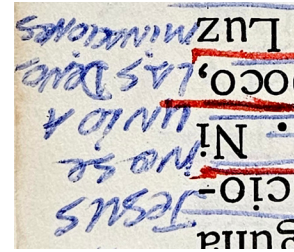 guna
cio-
. Ni
poco,
Luz
Jesus
no se
unió A
LAS Deno-
minaciones